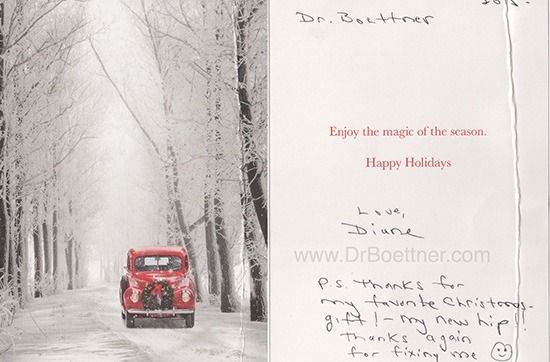 Dr. Boettner
Enjoy the magic of the season.
Happy Holidays
Love,
Diane
www.DrBoettner.com
P.S. Thanks for
my favorite Christmas
gift! - my new hip!!
Thanks again
for fixing me